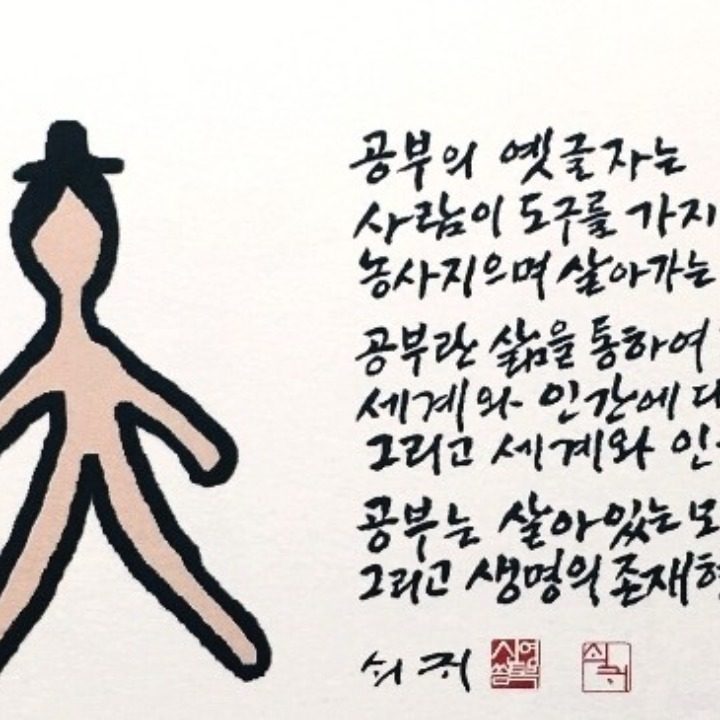 공부의 옛글자는
사람이 도구를 가지
농사지으며 살아가는
공부란 삶을 통하여
세계와 인간에 대
그리고 세계와 인
공부는 살아있는 모
그리고 생명의 존재
쇠귀